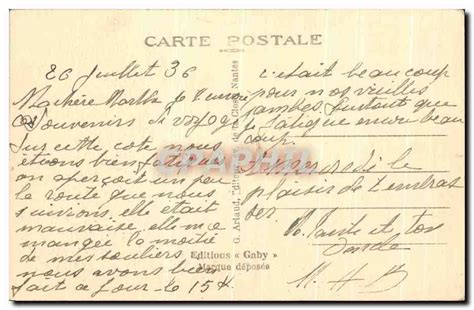 CARTE POSTALE
26 juillet 36
Ma chère Marthe je t'envoie
ces souvenirs de voyage
sur cette cote nous
etions bien fatigués
on aperçoit un peu
la route que nous
suivrons elle etait
mauvaise elle m'a
mangée la moitié
de mes souliers
nous avons bien
fait ce jour le 15K
c'etait beaucoup
pour nos vieilles
jambes surtout que
je fatigue encore beau
coup
le
plaisir de t'embras
ser
et ton
Oncle
G. Artaud, Editeur, de la Close, Nantes
Editions « Gaby »
Marque déposée
CPARAMA